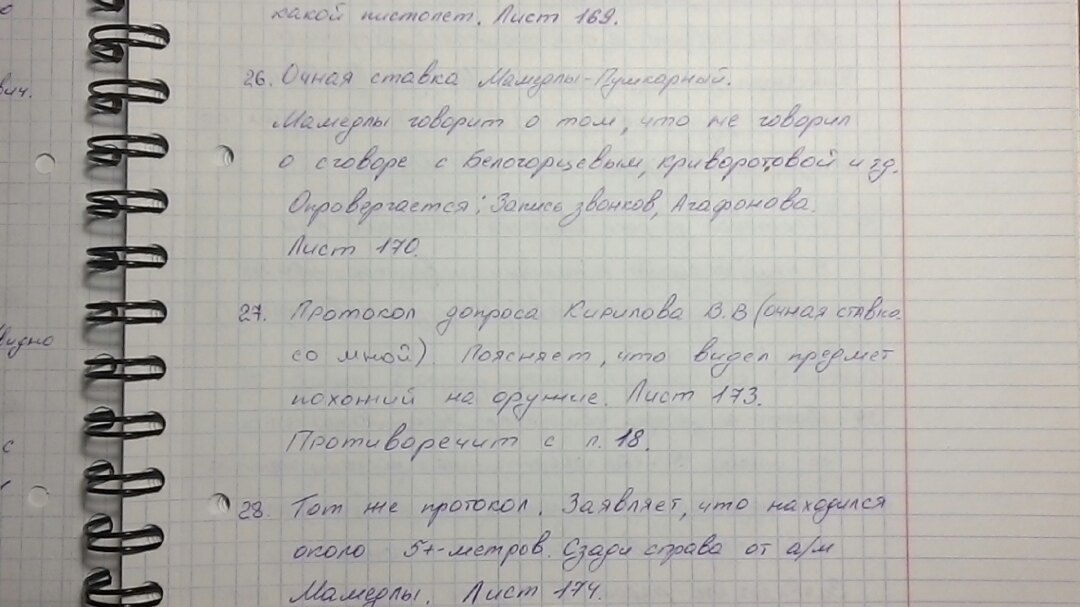 какой пистолет. Лист 169.
26. Очная ставка Мамедлы-Пушкарный.
Мамедлы говорит о том, что не говорил
о сговоре с Белогорцевым, Криворотовой и тд.
Опровергается: Запись звонков, Агафонова.
Лист 170.
27. Протокол допроса Кирилова В.В (очная ставка
со мной) Поясняет, что видел предмет
похожий на оружие. Лист 173.
Противоречит с п. 18.
28. Тот же протокол. Заявляет, что находился
около 5+-метров. Сзади справа от а/м
Мамедлы. Лист 174.
вич.
видно
с